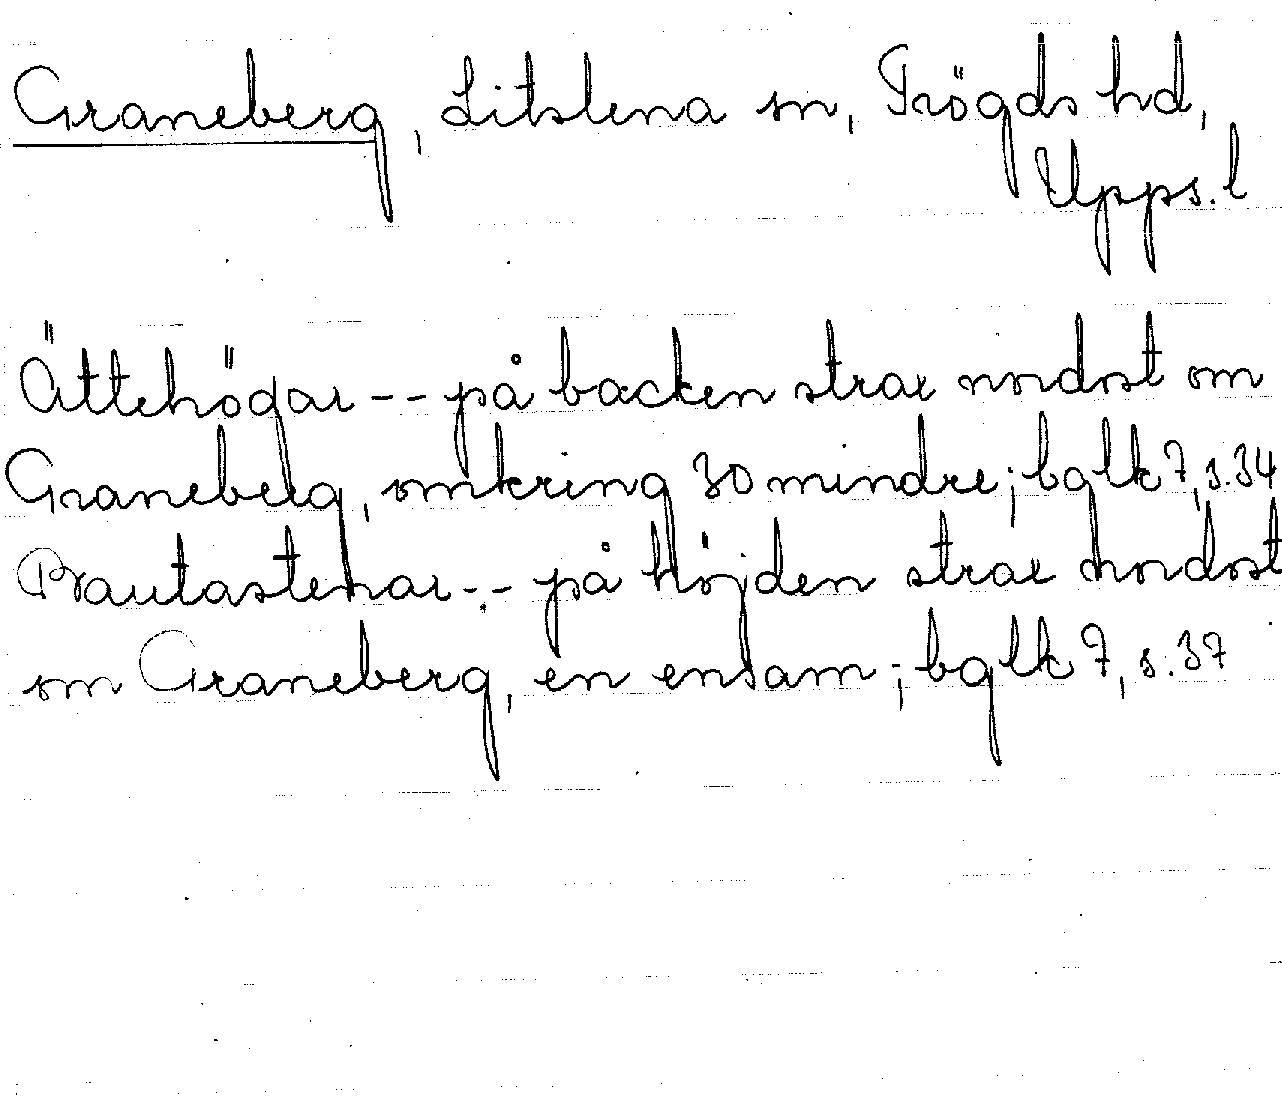 Graneberg, Litslena sn, Trögds hd,
Upps. l
Ättehögar -- på backen strax nordost om
Graneberg, omkring 30 mindre; bglk 7, s. 34
Bautastenar -- på höjden strax nordost
om Graneberg, en ensam; bglk 7, s. 37